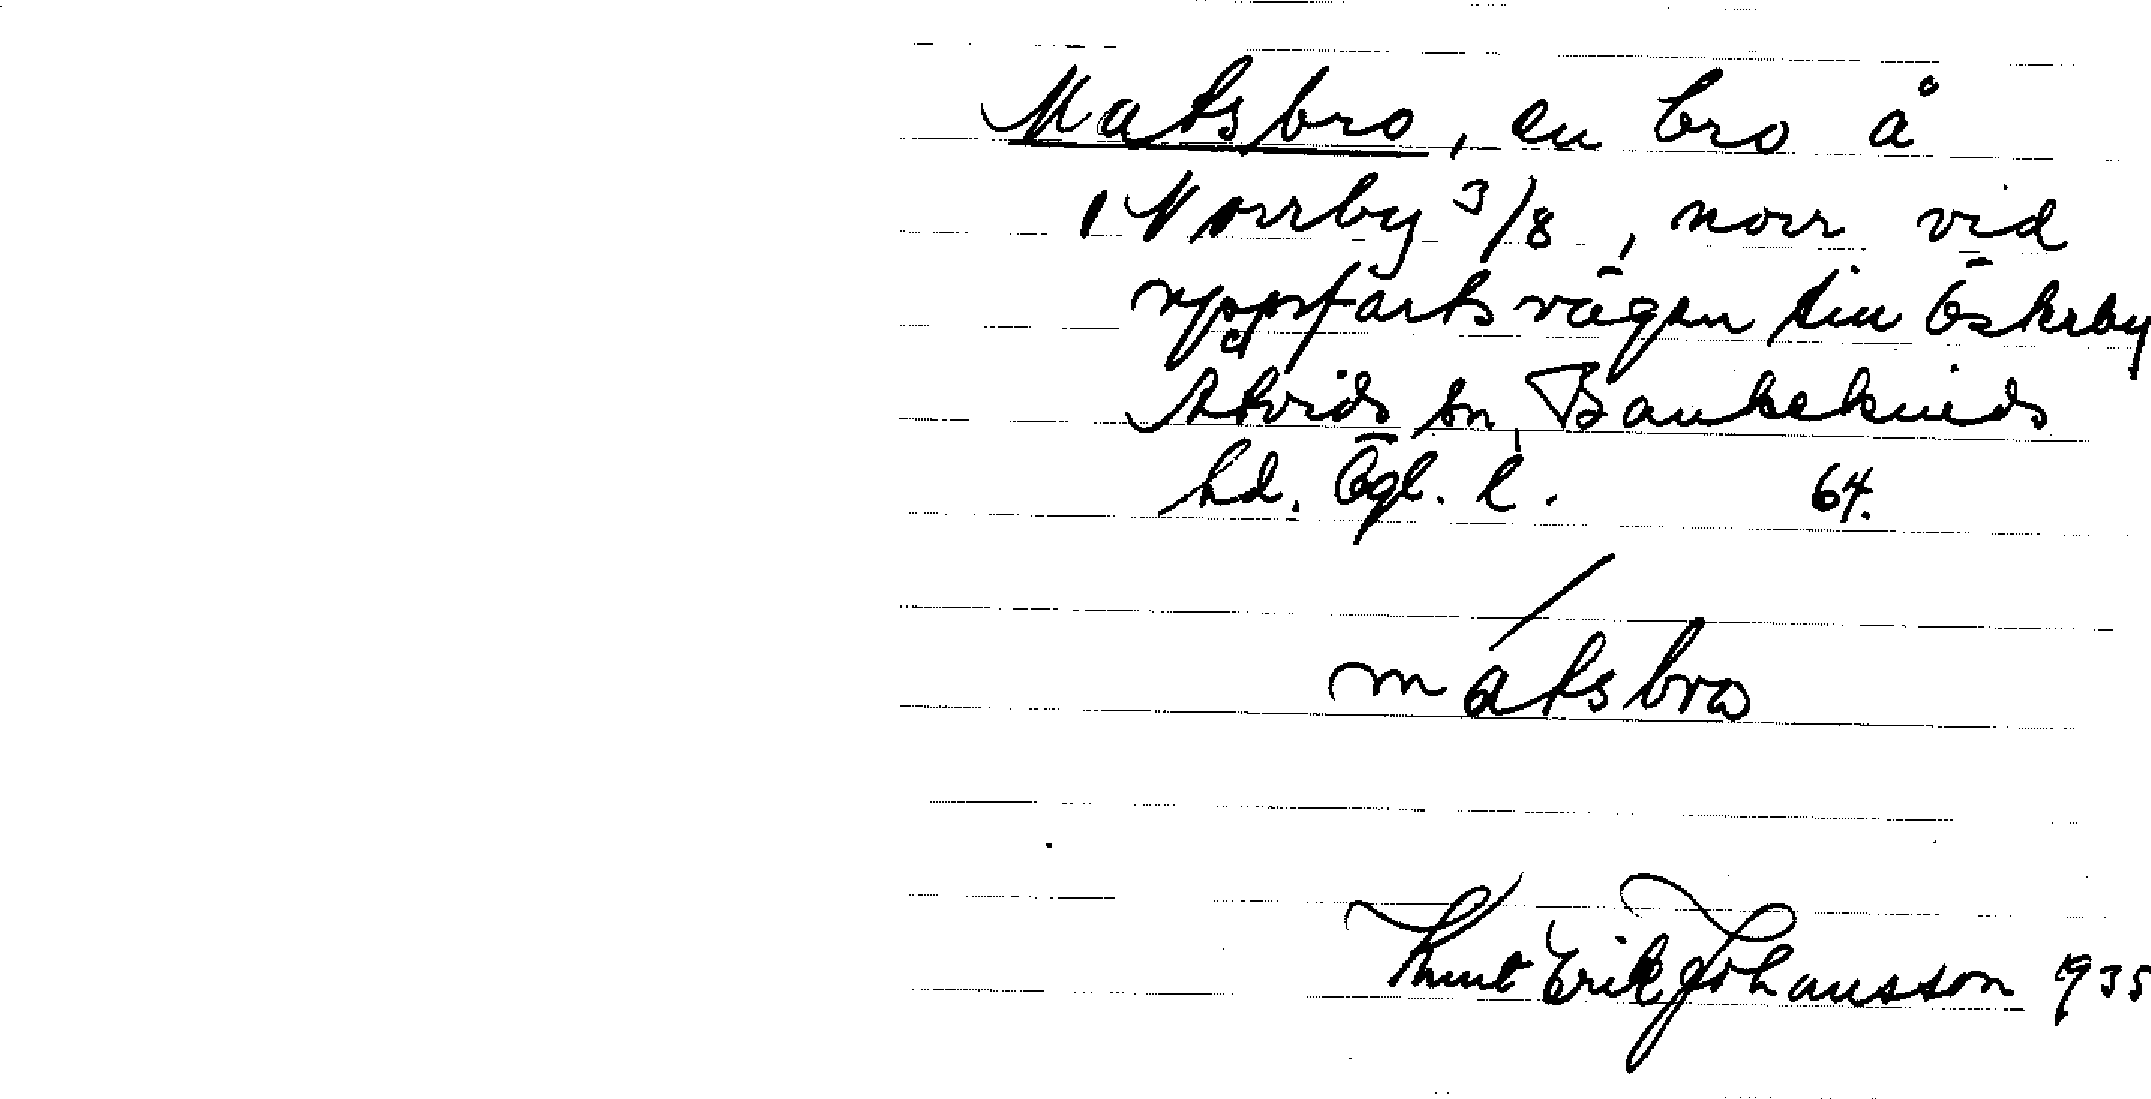 Matsbro, en bro å
Norrby 3/8, norr vid
uppfartsvägen till Österby
Åtvids sn, Bankekinds
hd. Ögl. l. 64.
mátsbro
Knut Erik Johansson 1935